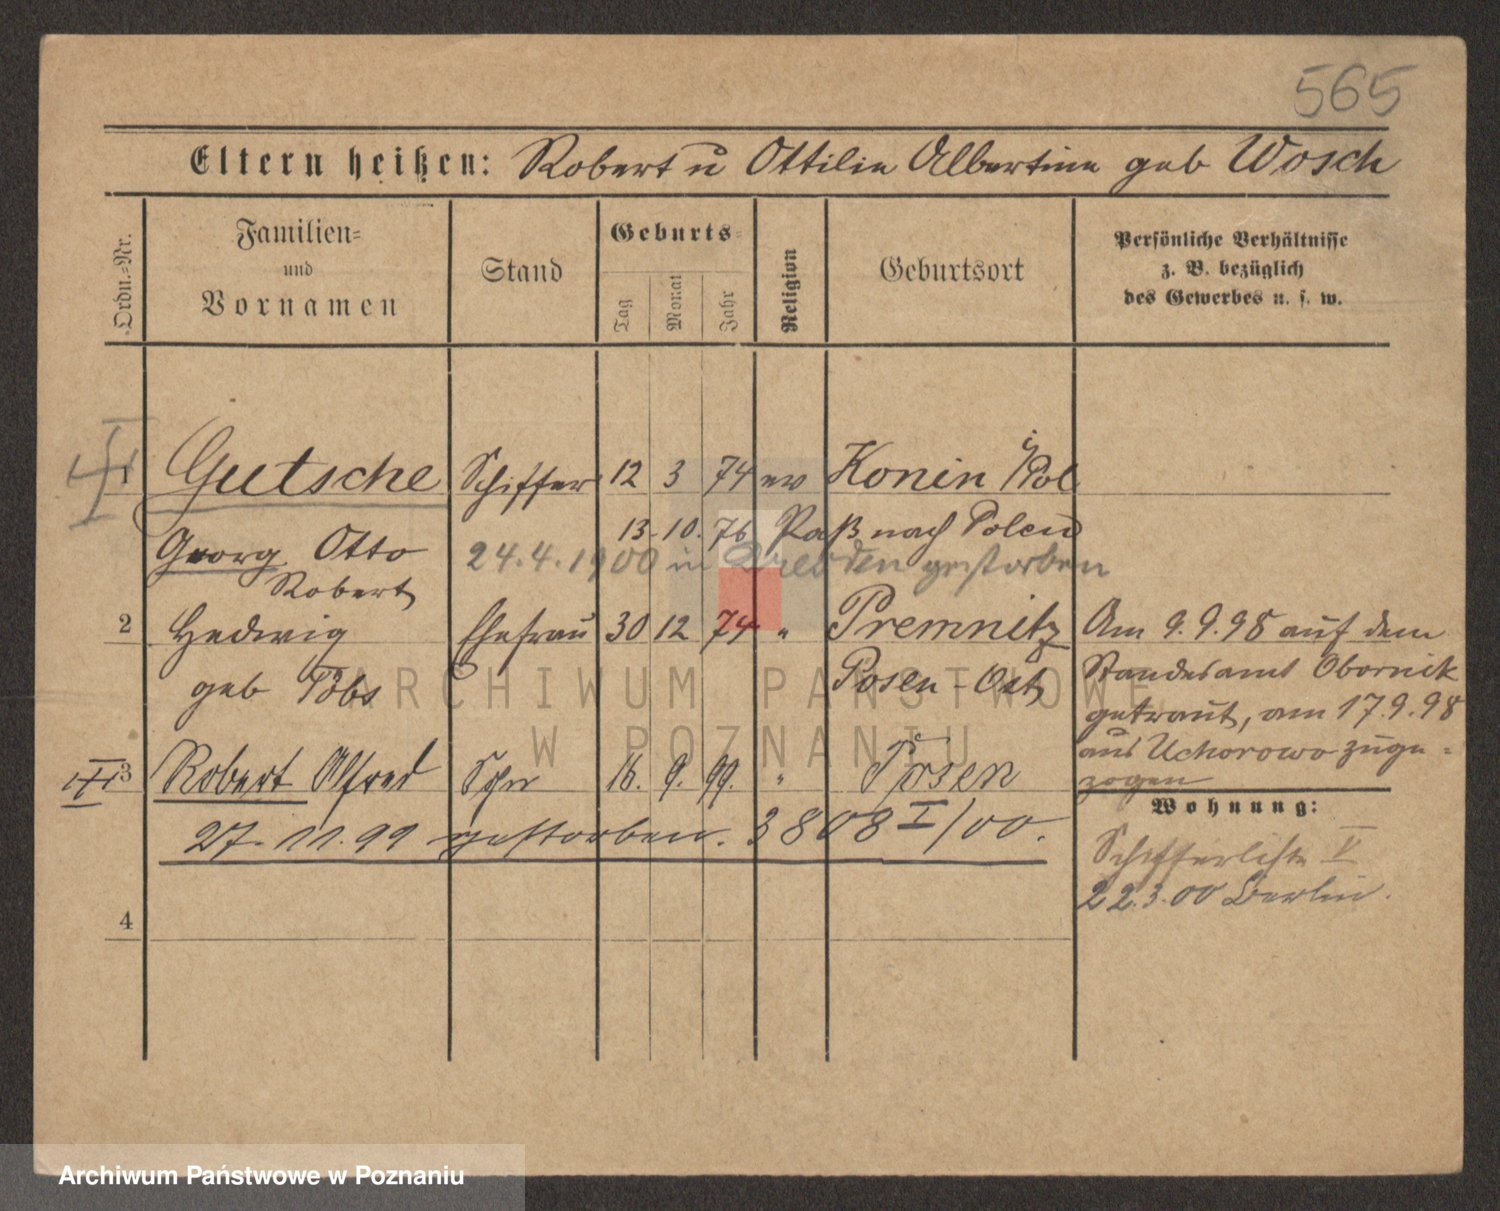 565
Eltern heißen: Robert u Ottilie Albertine geb Wosch
Ordn.=Nr.
Familien=
und
Vornamen
Stand
Geburts=
Tag
Monat
Jahr
Religion
Geburtsort
Persönliche Verhältnisse
z. B. bezüglich
des Gewerbes u. s. w.
1 Gutsche Schiffer 12 3 74 ev Konin i/Pol
13. 10. 76 Paß nach Polen
Georg Otto 24.4.1900 in Dresden gestorben
Robert
2 Hedwig Ehefrau 30 12 74 " Premnitz Am 9.9.98 auf dem
geb Posen-Ost Standesamt Obornik
getraut, am 17.9.98
aus Uchorowo zuge=
zogen
3 Robert Alfred Sohn 16. 9. 99. " Posen
27.11.99 gestorben. 3808 I/00.
Wohnung:
Schifferliste V
22.3.00 Berlin.
4
ARCHIWUM PAŃSTWOWE
W POZNANIU
Archiwum Państwowe w Poznaniu